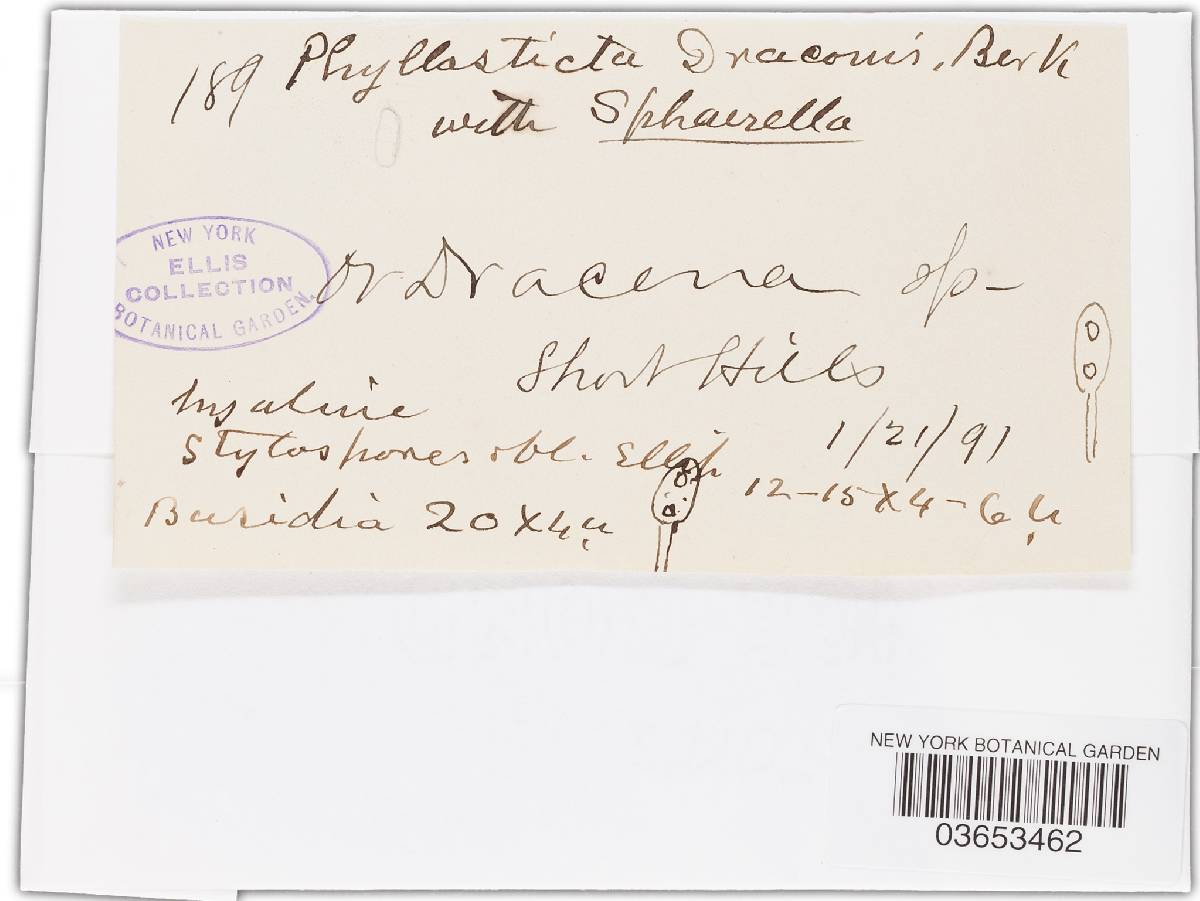 189 Phyllosticta Draconis, Berk
with Sphaerella
NEW YORK
ELLIS
COLLECTION
BOTANICAL GARDEN.
Or Dracena sp-
Short Hills
hyaline
1/21/91
Stylospores obl. Ellip
12-15X4-6 µ
Basidia 20X4µ
NEW YORK BOTANICAL GARDEN
03653462